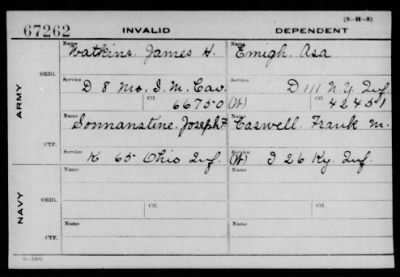 (3-H-3)
67262 INVALID DEPENDENT
Name Watkins, James H. Name Emigh, Asa
ORIG.
Service D 8 Mo. S. M. Cav. Service D 111 N. Y. Inf.
Ctf. 66750 (W) Ctf. 42451
ARMY
Name Sonnanstine, Joseph F. Name Caswell, Frank M.
CTF.
Service K 65 Ohio Inf. Service (W) I 26 Ky. Inf.
Name Name
ORIG.
Service Ctf. Service Ctf.
NAVY
Name Name
CTF.
Service Service